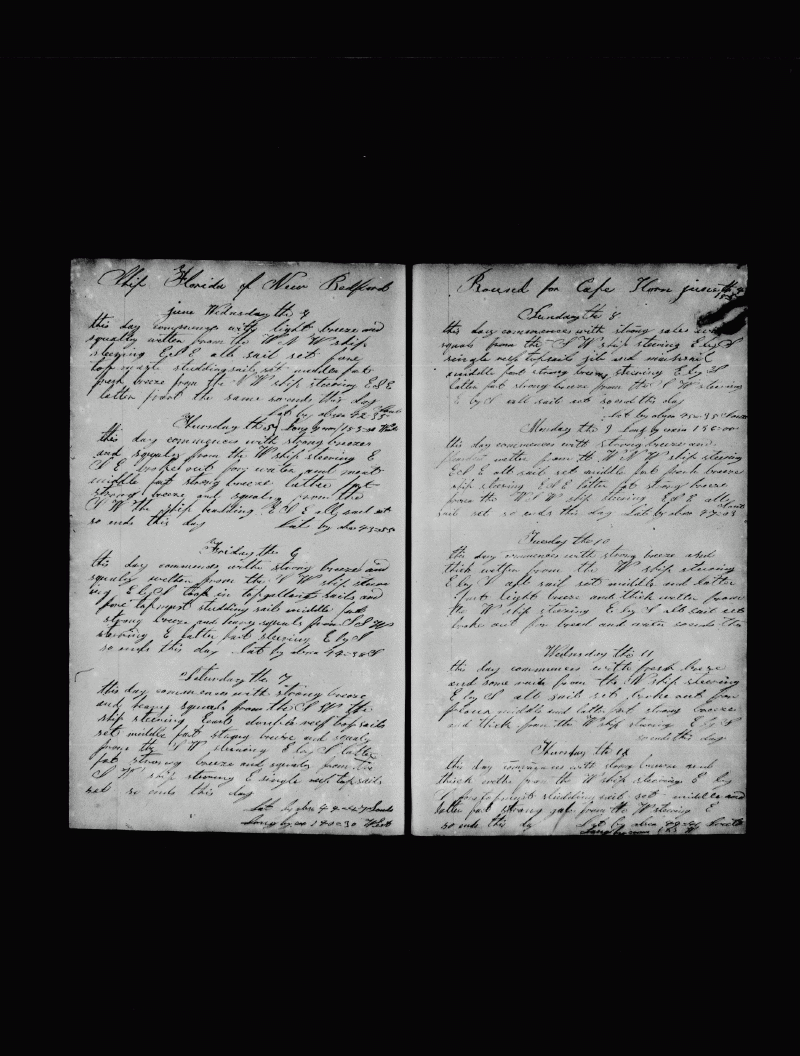 Ship Florida of New Bedford
june Wednesday the 4
this day commences with light breeze and
squally wether from the W N W ship
steering E S E all sail set fore
top mast studdingsails set middle part
fresh breeze from the N W ship steering E S E
latter part the same so ends this day
Lat by obser 42=35 South
Thursday the 5 Long by cron 153=00 West
this day commences with strong breezes
and squalls from the W ship steering E
S E broke out for water and meat
middle part strong breeze latter part
strong breeze and squalls from the
S W the ship heading E S E all sail set
so ends this day Lat by obs 43=55
Friday the 6
this day commences withe strong breeze and
squally wether from the S W ship steer
ing E by S took in topgallant sails and
fore topmast studding sails middle part
strong breeze and heavy squalls from S S W
steering E latter part steering E by S
so ends this day Lat by obser 44=38 S
Saturday the 7
this day commences with strong breeze
and heavy squalls from the S W the
ship steering East double reef topsails
set middle part strong breeze and squaly
from the S W steering E by S latter
part strong breeze and squalls from the
S W ship steering E single reef topsails
set so ends this day
Lat by obser South
Long by cro 140=30 West
Bound for Cape Horn june the
Sunday the 8
this day commences with strong gales and
squals from the S W ship steering E by S
single reef topsails jib and mainsail
middle part strong breeze steering E by S
latter part strong breeze from the S W steering
E by S all sail set so ends this day
Lat by obser 45=35 South
Monday the 9 Long by cron 136=00
this day commences with strong breeze and
wether from the W N W ship steering
E S E all sail set middle part fresh breeze
ship steering E S E latter part strong breeze
from the W S W ship steering E S E all
sail set so ends this day Lat by obser 47=03 South
Tuesday the 10
this day commences with strong breeze and
thick wether from the W ship steering
E by S all sail set middle and latter
part light breeze and thick wether from
the W ship steering E by S all sail set
broke out for bread and water so ends this
Wednesday the 11
this day commences with fresh breeze
and some rain from the W ship steering
E by S all sail set broke out for
flour middle and latter part strong breeze
and thick from the W ship steering E by S
so ends this day
Thursday the 12
this day commences with strong breeze and
thick wether from the W ship steering E by
S foretopmast studdingsail set middle and
latter part strong gale from the W steering E
so ends this day Lat by obser South
Long by cron W